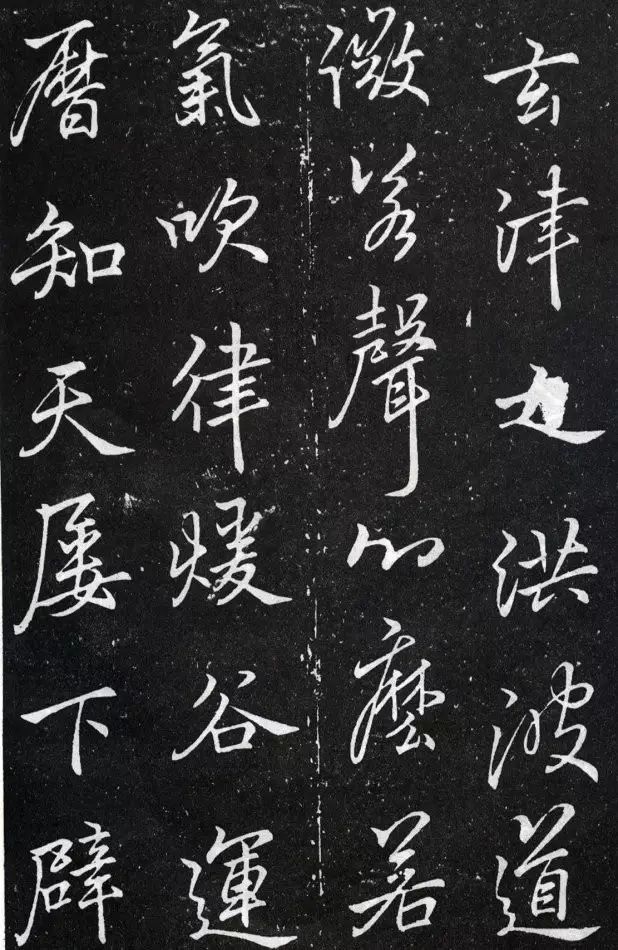 玄津之洪波道
微聲麽若
氣吹律煖谷運
曆知天屢下辟